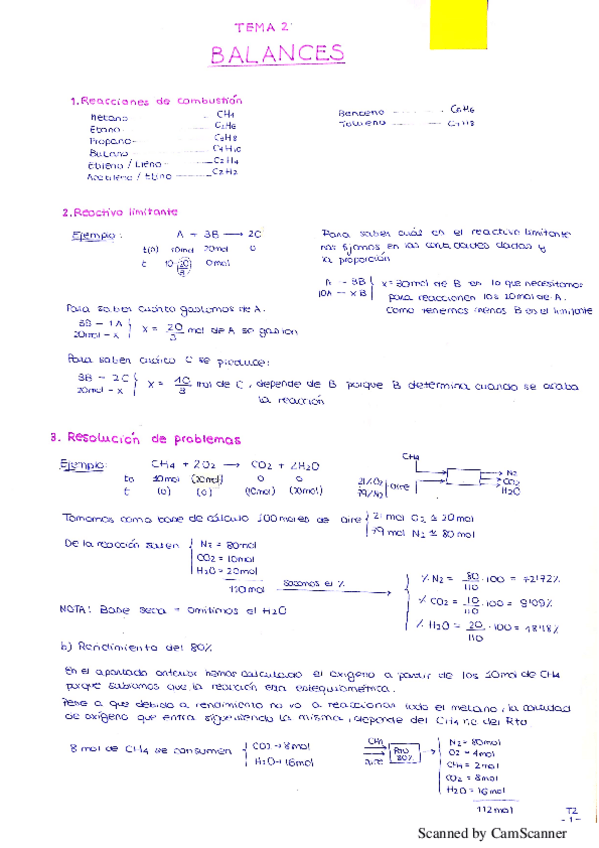 TEMA 2:
BALANCES
1. Reacciones de combustión
Metano ---------- CH4
Etano ---------- C2H6
Propano ---------- C3H8
Butano ---------- C4H10
Etileno / Eteno ---------- C2H4
Acetileno / Etino ---------- C2H2
Benceno ---------- C6H6
Tolueno ---------- C7H8
2. Reactivo limitante
Ejemplo: A + 3B ⟶ 2C
t(0) 10mol 20mol 0
t 10-20/3 0mol
Para saber cuál en el reactivo limitante
nos fijamos en las cantidades dadas y
la proporción
A - 3B
10A - x B } x = 30mol de B es lo que necesitamos
para reaccionen los 10mol de A.
Como tenemos menos B es el limitante
Para saber cuánto gastamos de A:
3B - 1A
20mol - x } x = 20/3 mol de A se gastan
Para saber cuánto C se produce:
3B - 2C
20mol - x } x = 40/3 mol de C, depende de B porque B determina cuando se acaba
la reacción
3. Resolución de problemas
Ejemplo: CH4 + 2O2 ⟶ CO2 + 2H2O
to 10mol (20mol) 0 0
t (0) (0) (10mol) (20mol)
CH4
21%O2
79%N2 aire
N2
CO2
H2O
Tomamos como base de cálculo 100moles de aire { 21 mol O2 ≅ 20mol
79 mol N2 ≅ 80 mol
De la reacción salen { N2 = 80mol
CO2 = 10mol
H2O = 20mol
110 mol
sacamos el %
% N2 = 80/110 · 100 = 72'72%
% CO2 = 10/110 · 100 = 9'09%
% H2O = 20/110 · 100 = 18'18%
NOTA: Base seca = omitimos el H2O
b) Rendimiento del 80%
En el apartado anterior hemos calculado el oxígeno a partir de los 10mol de CH4
porque sabíamos que la reacción era estequiométrica.
Pese a que debido a rendimiento no va a reaccionar todo el metano, la cantidad
de oxígeno que entra sigue siendo la misma, depende del CH4 no del Rto
8 mol de CH4 se consumen { CO2 → 8mol
H2O → 16mol
CH4
aire
Rto
80%
N2 = 80mol
O2 = 4mol
CH4 = 2mol
CO2 = 8mol
H2O = 16mol
112mol
T2
-1-
Scanned by CamScanner